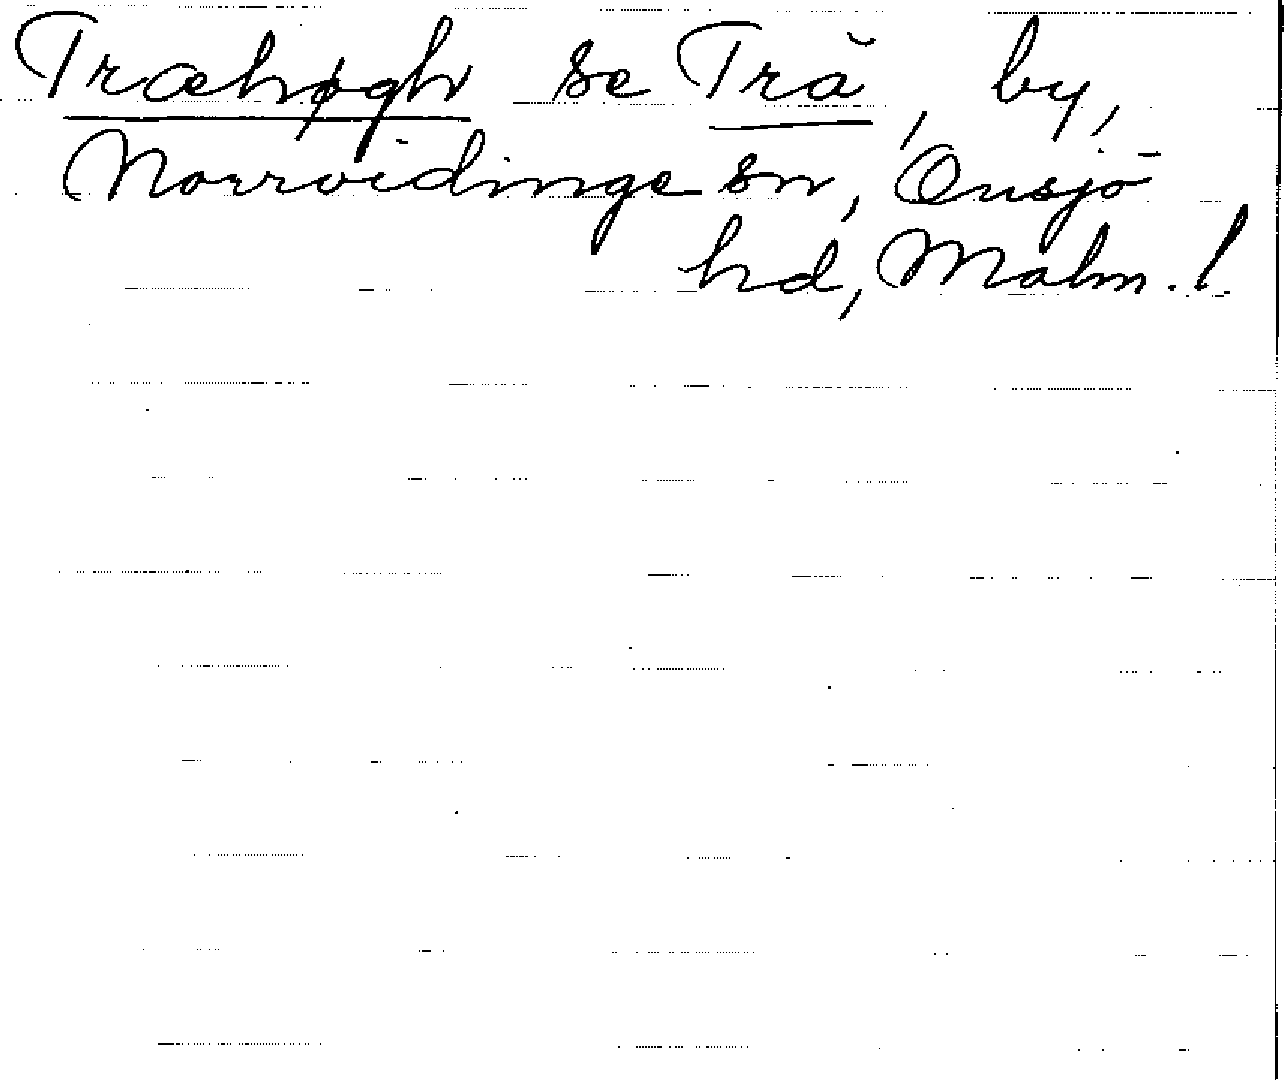 Træhøgh se Trä, by,
Norrvidinge sn, Onsjö
hd, Malm. l